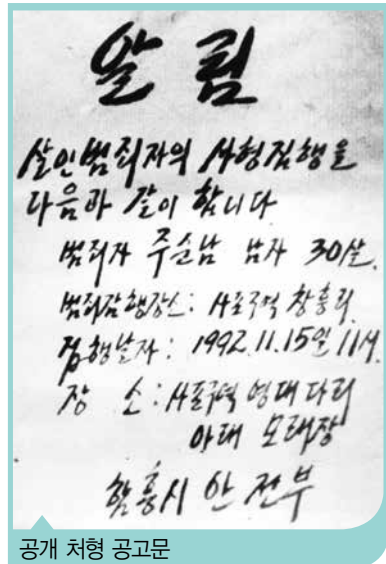 알 림
살인범죄자의 사형집행을
다음과 같이 합니다
범죄자 주순남 남자 30살.
범죄감행장소: 사포구역 창흥리
집행날자: 1992.11.15일 11시.
장 소: 사포구역 영대다리
아래 모래장
함흥시 안전부
공개 처형 공고문